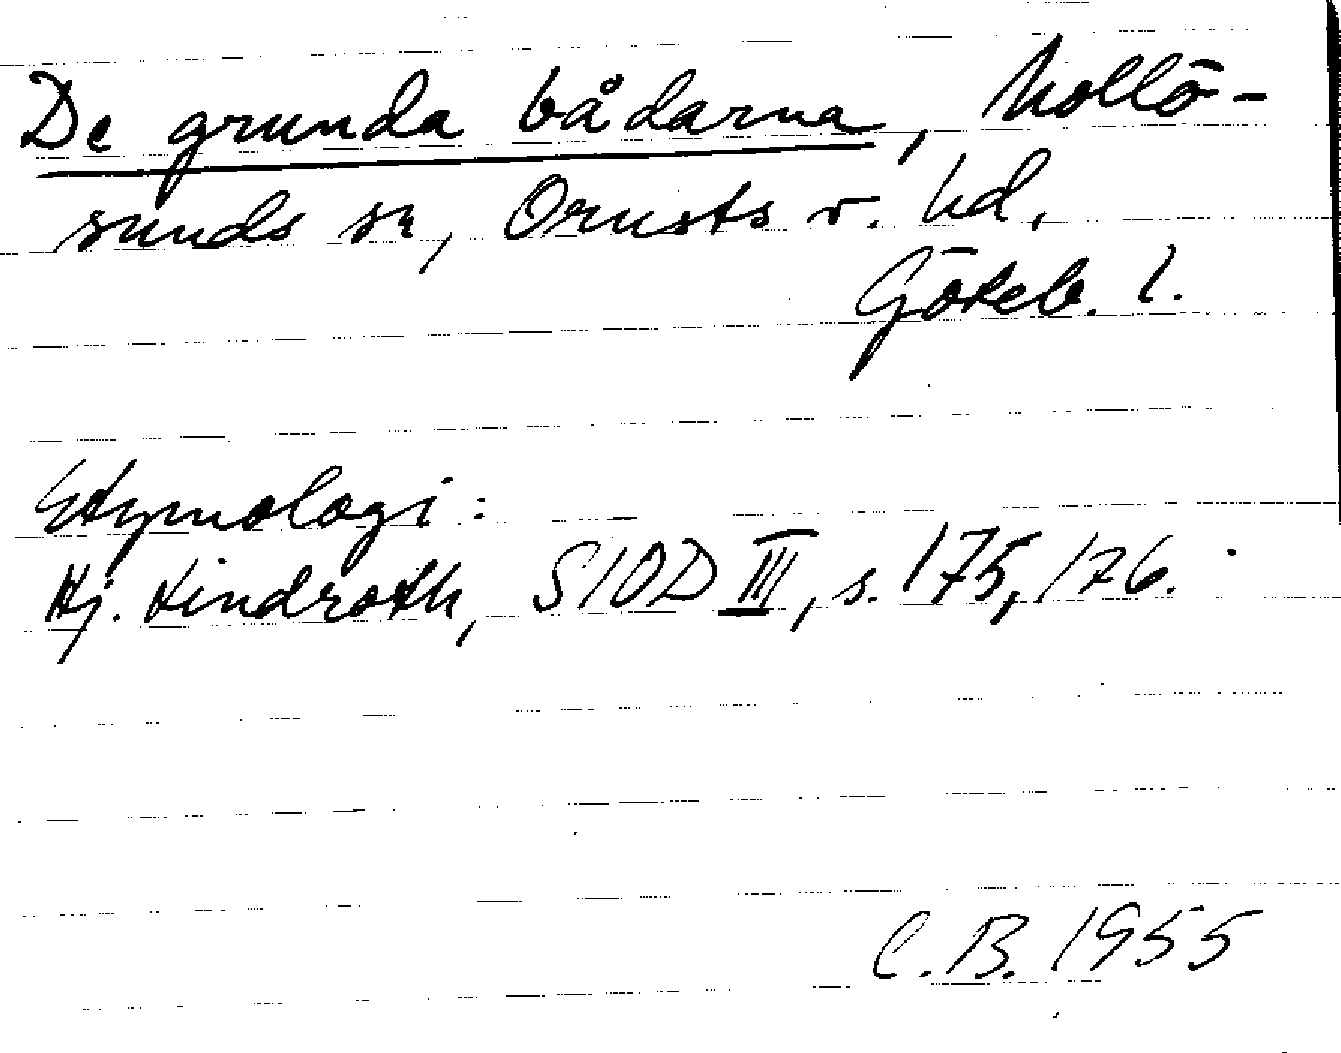 De grunda bådarna, Mollö-
sunds sn, Orusts v. hd,
Göteb. l.
Etymologi:
Hj. Lindroth, SIOD III, s. 175, 176.
C.B. 1955